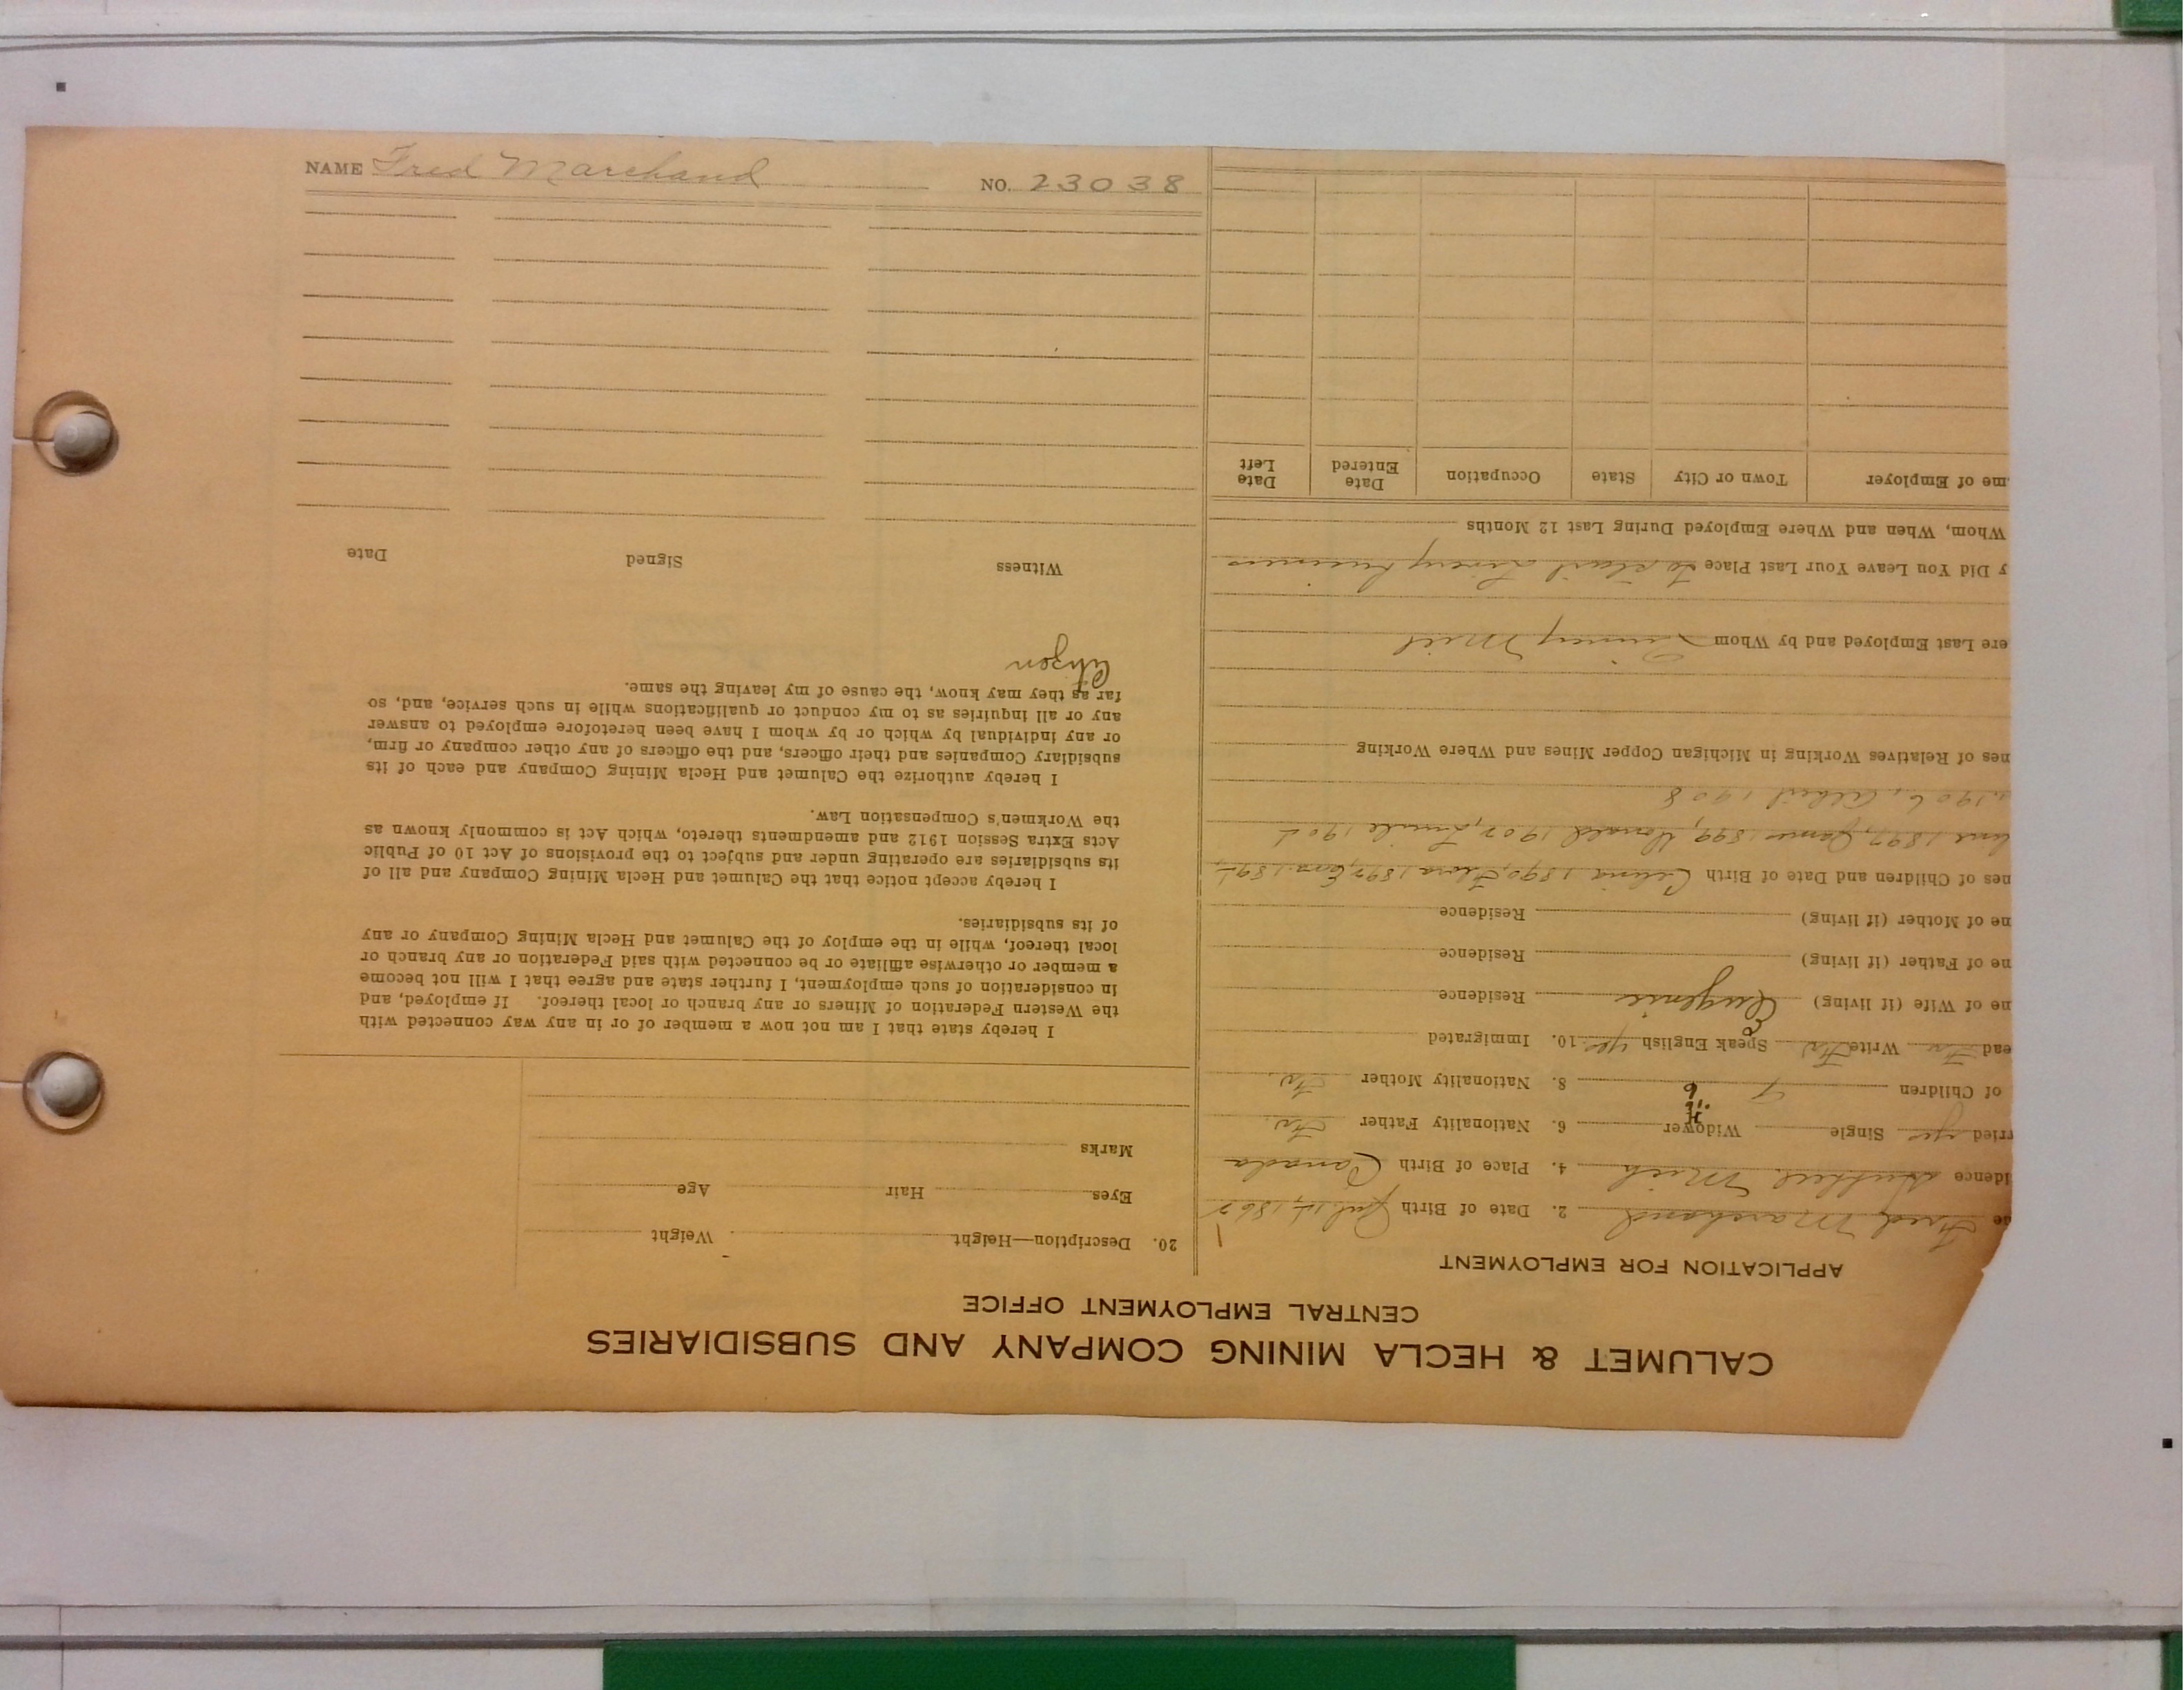 CALUMET & HECLA MINING COMPANY AND SUBSIDIARIES
CENTRAL EMPLOYMENT OFFICE
APPLICATION FOR EMPLOYMENT
Fred Marchand 2. Date of Birth
idence Mich 4. Place of Birth Canada
rried yes Single Widower 6. Nationality Father Fr.
of Children 8. Nationality Mother Fr.
ead Fr Write Fr Speak English yes 10. Immigrated
ne of Wife (if living) Eugenie Residence
ne of Father (if living) Residence
ne of Mother (if living) Residence
nes of Children and Date of Birth 1890, Flora
1897, James 1899, 1902, 1904
1906, Albert 1908
nes of Relatives Working in Michigan Copper Mines and Where Working
ere Last Employed and by Whom Quincy Mill
y Did You Leave Your Last Place To start Livery business
Whom, When and Where Employed During Last 12 Months
me of Employer Town or City State Occupation Date Entered Date Left
20. Description—Height Weight
Eyes Hair Age
Marks
I hereby state that I am not now a member of or in any way connected with
the Western Federation of Miners or any branch or local thereof. If employed, and
in consideration of such employment, I further state and agree that I will not become
a member or otherwise affiliate or be connected with said Federation or any branch or
local thereof, while in the employ of the Calumet and Hecla Mining Company or any
of its subsidiaries.
I hereby accept notice that the Calumet and Hecla Mining Company and all of
its subsidiaries are operating under and subject to the provisions of Act 10 of Public
Acts Extra Session 1912 and amendments thereto, which Act is commonly known as
the Workmen's Compensation Law.
I hereby authorize the Calumet and Hecla Mining Company and each of its
subsidiary Companies and their officers, and the officers of any other company or firm,
or any individual by which or by whom I have been heretofore employed to answer
any or all inquiries as to my conduct or qualifications while in such service, and, so
far as they may know, the cause of my leaving the same.
Citizen
Witness Signed Date
NAME Fred Marchand NO. 23038